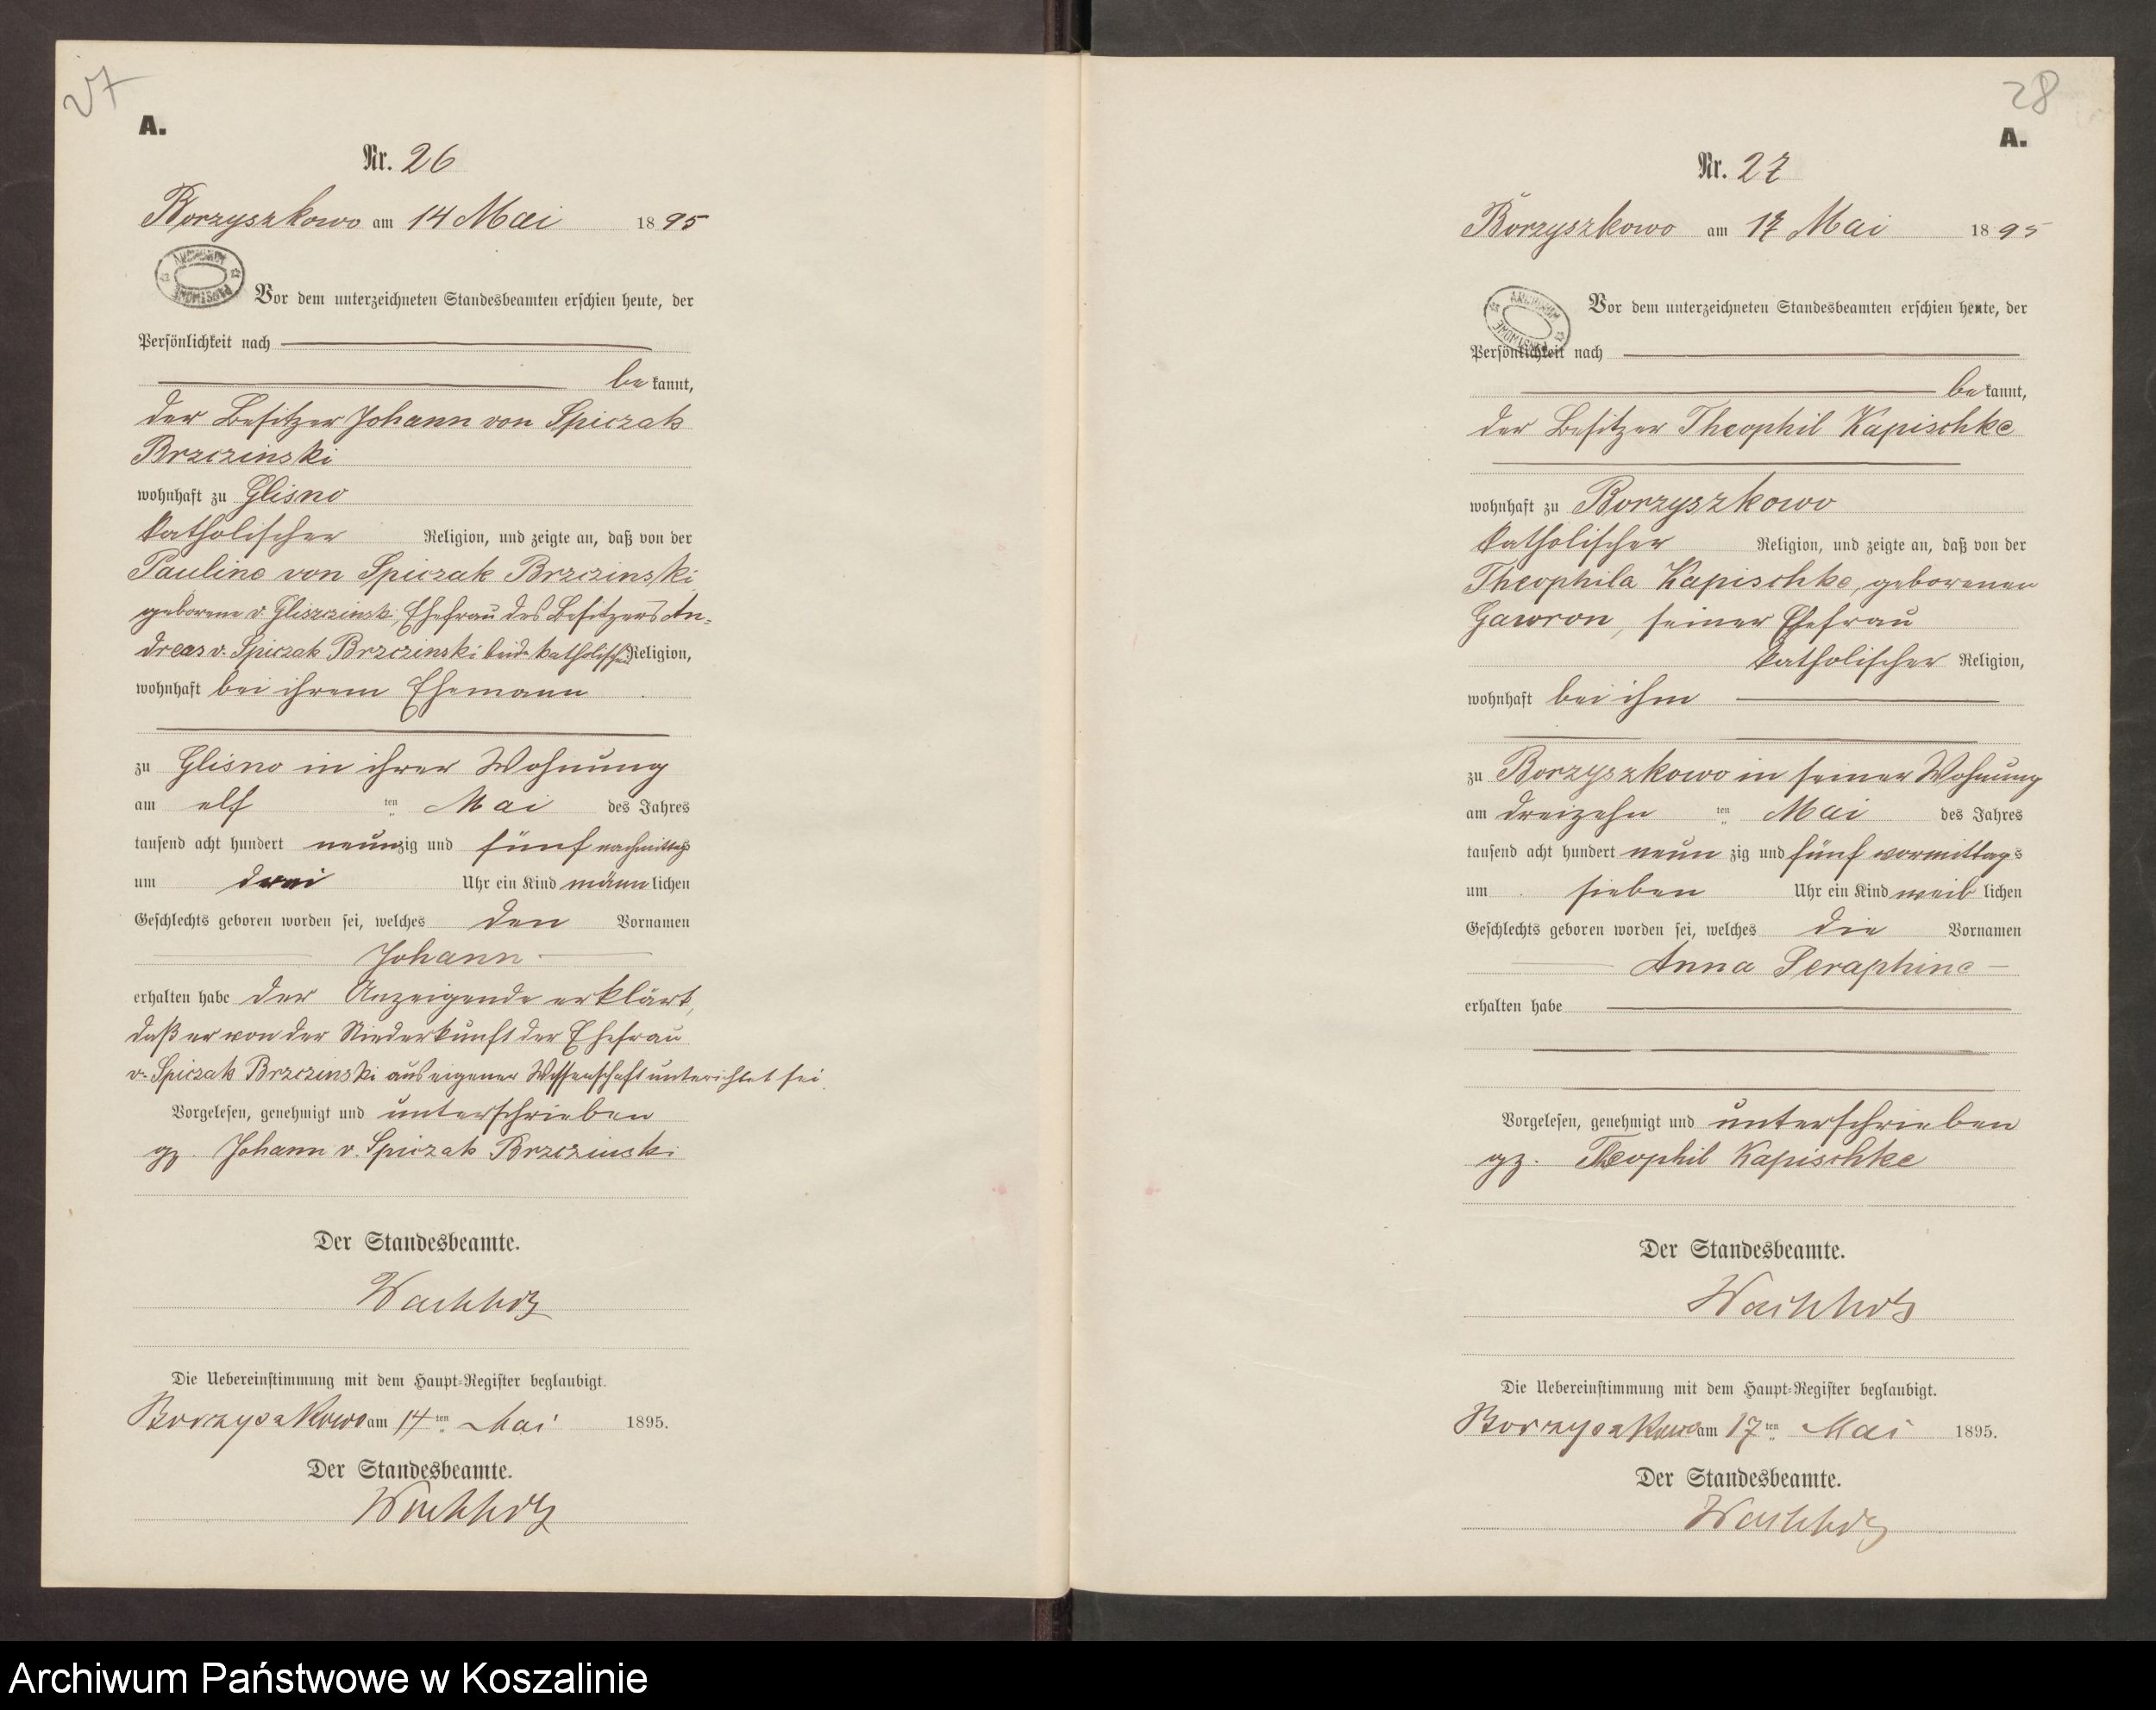 27
A.
Nr. 26
Borzyszkowo am 14 Mai 1895
ARCHIWUM PAŃSTWOWE
Vor dem unterzeichneten Standesbeamten erschien heute, der
Persönlichkeit nach
bekannt,
der Besitzer Johann von Spiczak
Brzczinski
wohnhaft zu Glisno
katholischer Religion, und zeigte an, daß von der
Pauline von Spiczak Brzczinski
geborene v. Gliszczinski, Ehefrau des Besitzers An-
dreas v. Spiczak Brzczinski beide katholischer Religion,
wohnhaft bei ihrem Ehemann
zu Glisno in ihrer Wohnung
am elf ten Mai des Jahres
tausend acht hundert neunzig und fünf nachmittags
um drei Uhr ein Kind männlichen
Geschlechts geboren worden sei, welches den Vornamen
Johann
erhalten habe der Anzeigende erklärt,
daß er von der Niederkunft der Ehefrau
v. Spiczak Brzczinski aus eigener Wissenschaft unterichtet sei.
Vorgelesen, genehmigt und unterschrieben
gz. Johann v. Spiczak Brzczinski
Der Standesbeamte.
Wachholz
Die Uebereinstimmung mit dem Haupt-Register beglaubigt.
Borzyszkowo am 14ten Mai 1895.
Der Standesbeamte.
Wachholz
28
A.
Nr. 27
Borzyszkowo am 17 Mai 1895
ARCHIWUM PAŃSTWOWE
Vor dem unterzeichneten Standesbeamten erschien heute, der
Persönlichkeit nach
bekannt,
der Besitzer Theophil Kapischke
wohnhaft zu Borzyszkowo
katholischer Religion, und zeigte an, daß von der
Theophila Kapischke, geborenen
Gawron, seiner Ehefrau
katholischer Religion,
wohnhaft bei ihm
zu Borzyszkowo in seiner Wohnung
am dreizehn ten Mai des Jahres
tausend acht hundert neunzig und fünf vormittags
um sieben Uhr ein Kind weiblichen
Geschlechts geboren worden sei, welches die Vornamen
Anna Seraphine
erhalten habe
Vorgelesen, genehmigt und unterschrieben
gz. Theophil Kapischke
Der Standesbeamte.
Wachholz
Die Uebereinstimmung mit dem Haupt-Register beglaubigt.
Borzyszkowo am 17ten Mai 1895.
Der Standesbeamte.
Wachholz
Archiwum Państwowe w Koszalinie